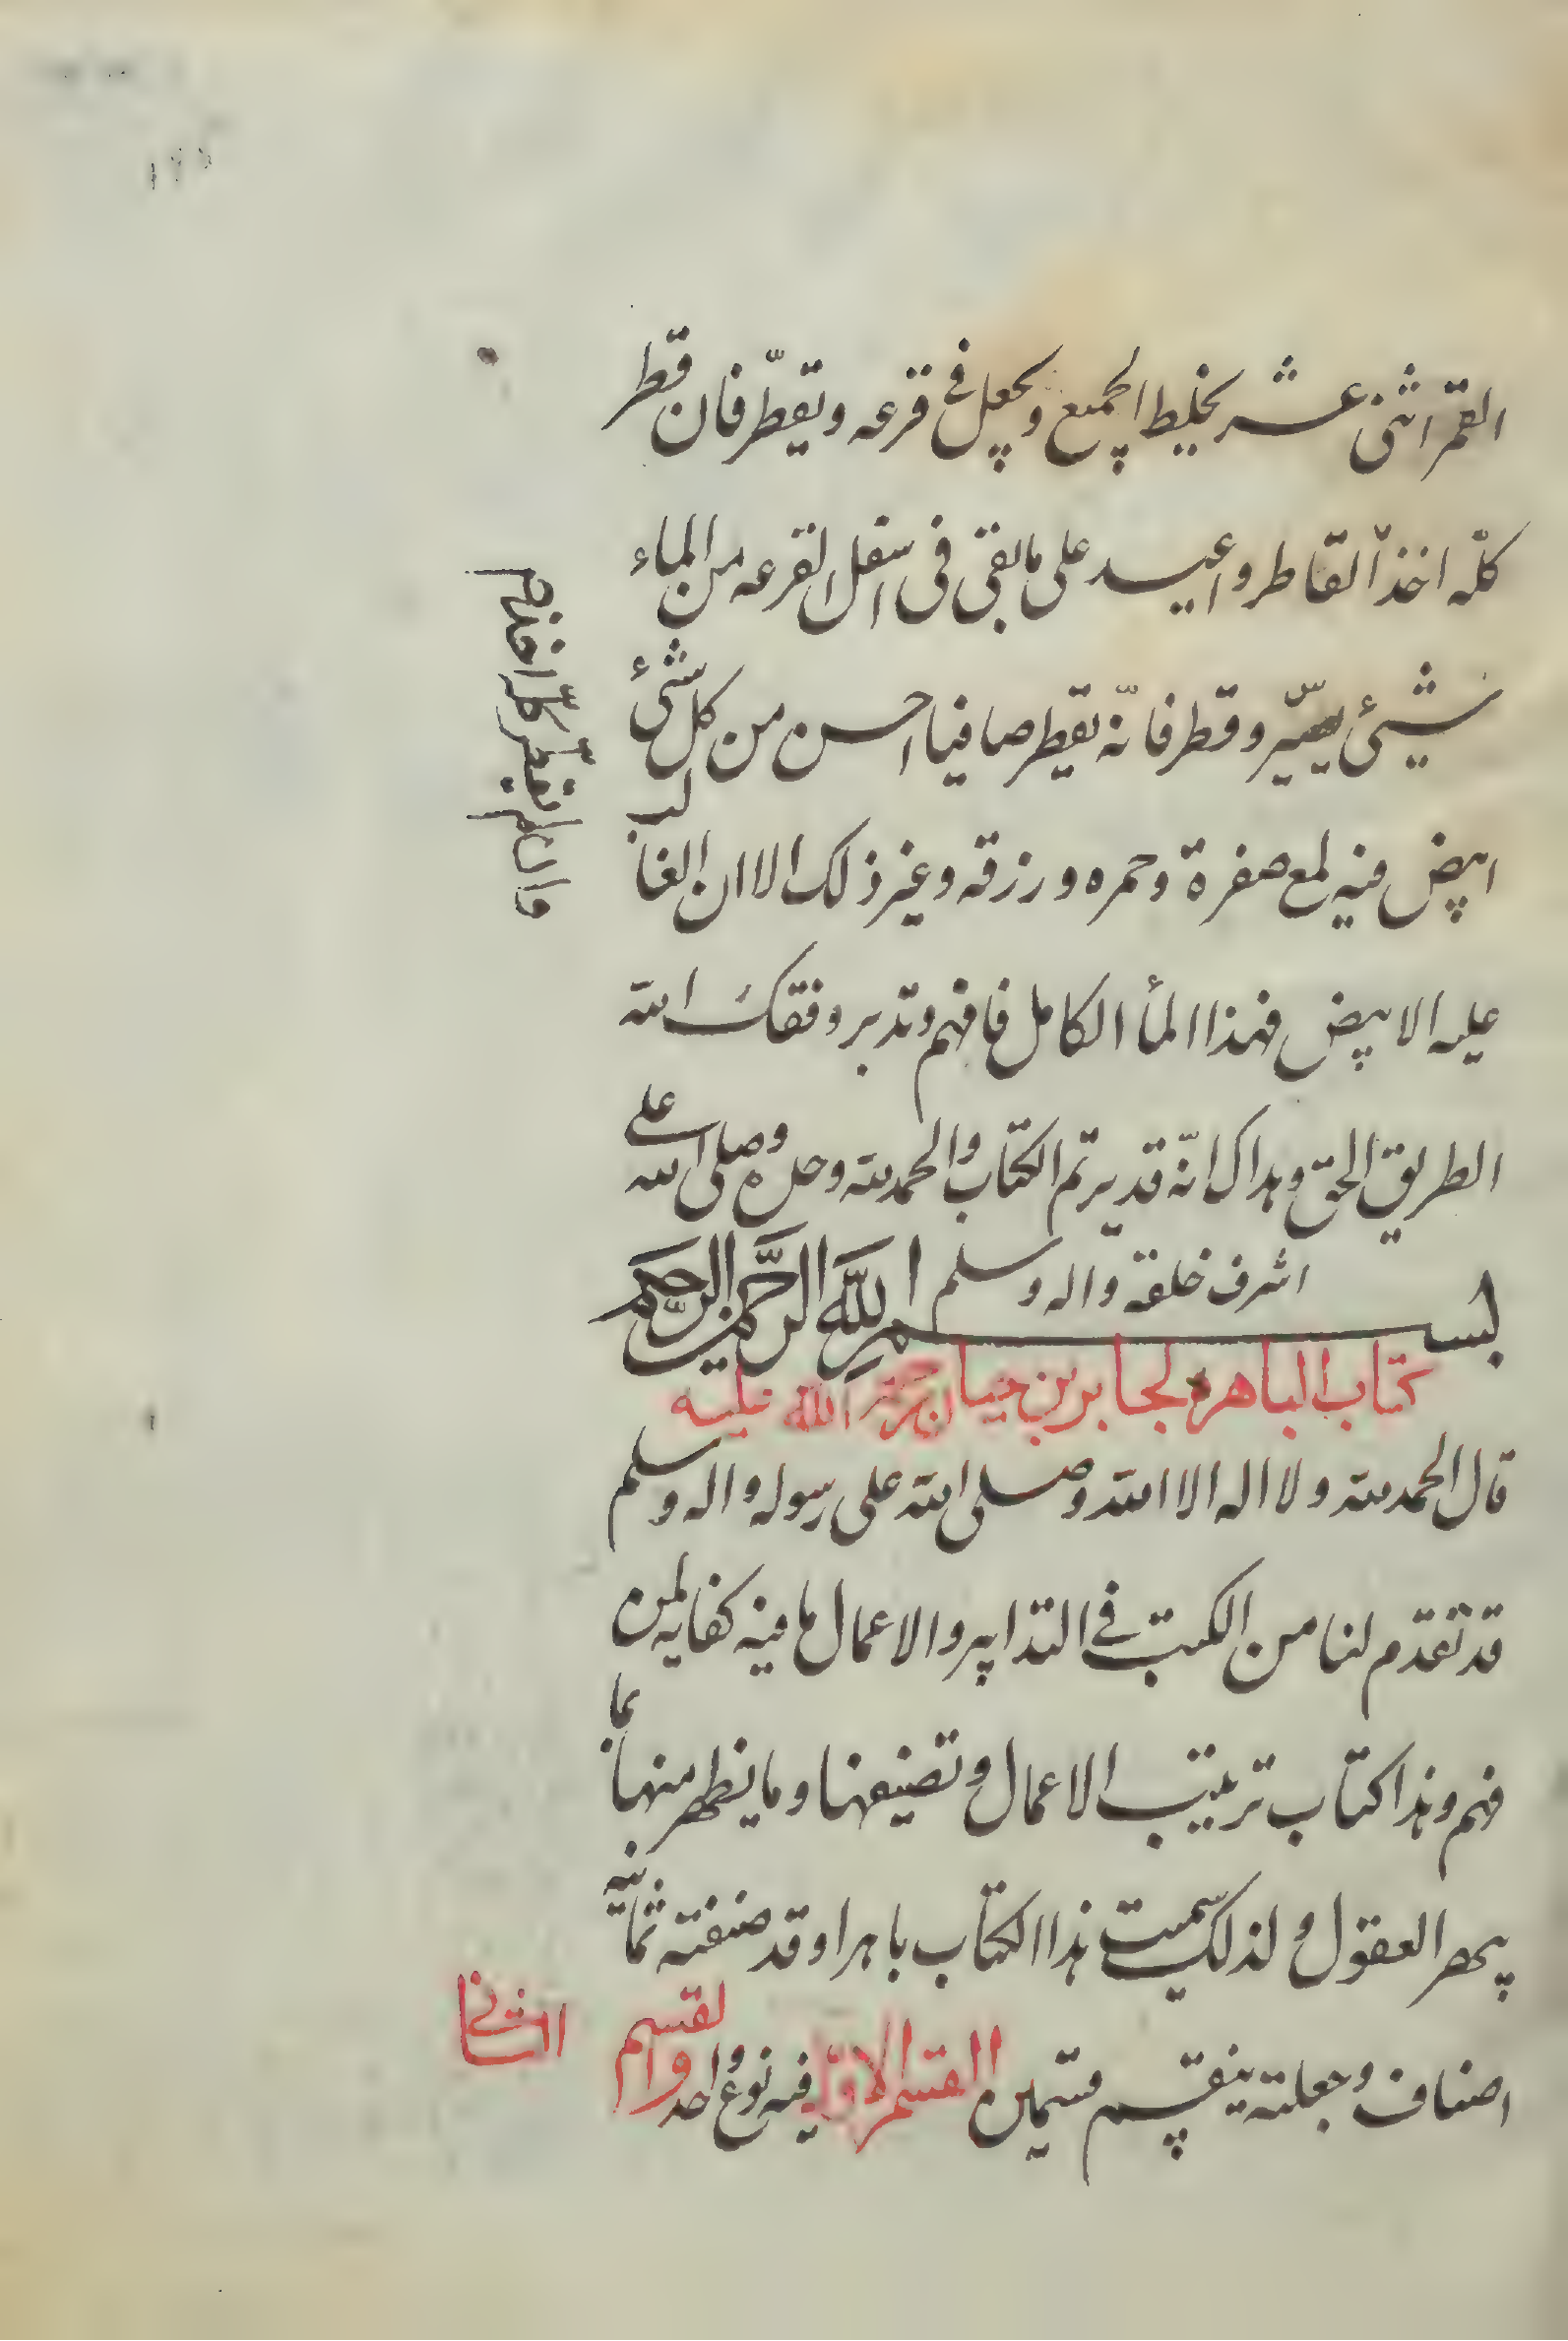 القمر اثنى عشر يخلط الجميع ويجعل في قرعه ويقطّر فان قطر
كلّه اخذ القاطر واعيد على ما بقى فى اسفل القرعه من الماء
شيئ يسير وقطر فانّه يقطر صافيا احسن من كل شئ
ابيض فيه لمع صفرة وحمره وزرقه وغير ذلك الا ان الغالب
عليه الابيض فهذا المأ الكامل فافهم وتدبر وفقك الله
الطريق الحق وهداك انّه قدير تم الكتاب والحمد لله وحده وصلى الله على
اشرف خلقه واله وسلم
بسم الله الرحمن الرحيم
كتاب الباهره لجابر بن حيان رحمة الله عليه
قال الحمد لله ولا اله الا الله وصلى الله على رسوله واله وسلم
قد تقدم لنا من الكتب في التدابير والاعمال ما فيه كفايه لمن
فهم وهذا كتاب ترتيب الاعمال وتصنيفها وما يظهر منها بما
يبهر العقول ولذلك سميت هذا الكتاب باهرا وقد صنفته ثمانيه
اصناف وجعلته ينقسم قسمين القسم الاوّل فيه نوع واحد والقسم الثاني
وان لم يقطر كلّه اخذ ما